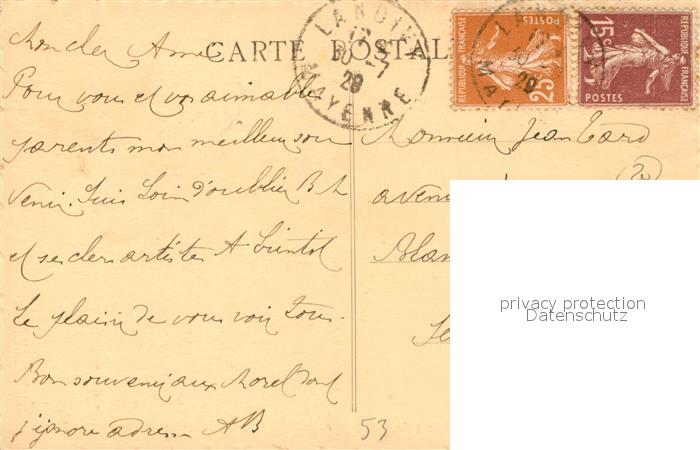 CARTE POSTALE
LANDIVY
30-7
29
MAYENNE
RÉPUBLIQUE FRANÇAISE
POSTES
25c
RÉPUBLIQUE FRANÇAISE
15c
POSTES
Mon cher Ami
Pour vous et vos aimables
parents mon meilleur sou
venir. Suis loin d'oublier B
et ses chers artistes A bientôt
Le plaisir de vous voir tous.
Bon souvenir aux Morel dont
j'ignore adresse AB
Monsieur Jean
aven
53
privacy protection
Datenschutz